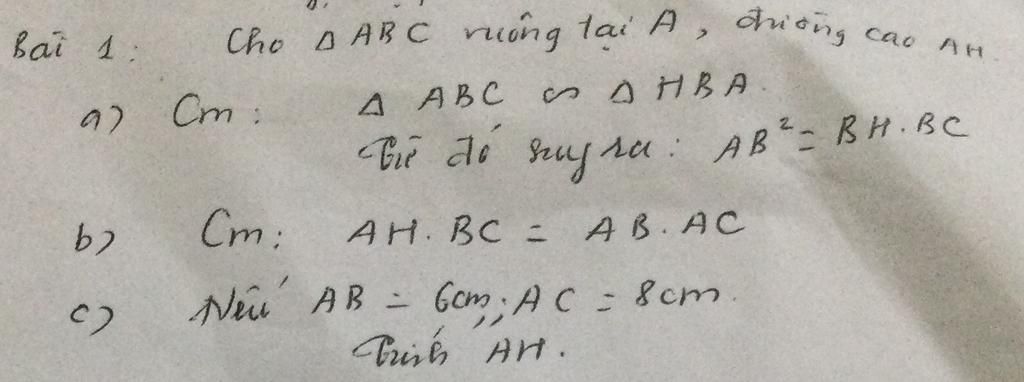 Bài 1: Cho Δ ABC vuông tại A, đường cao AH.
a) Cm: Δ ABC ∽ Δ HBA.
Từ đó suy ra: AB² = BH.BC
b) Cm: AH.BC = AB.AC
c) Nếu AB = 6cm; AC = 8cm.
Tính AH.